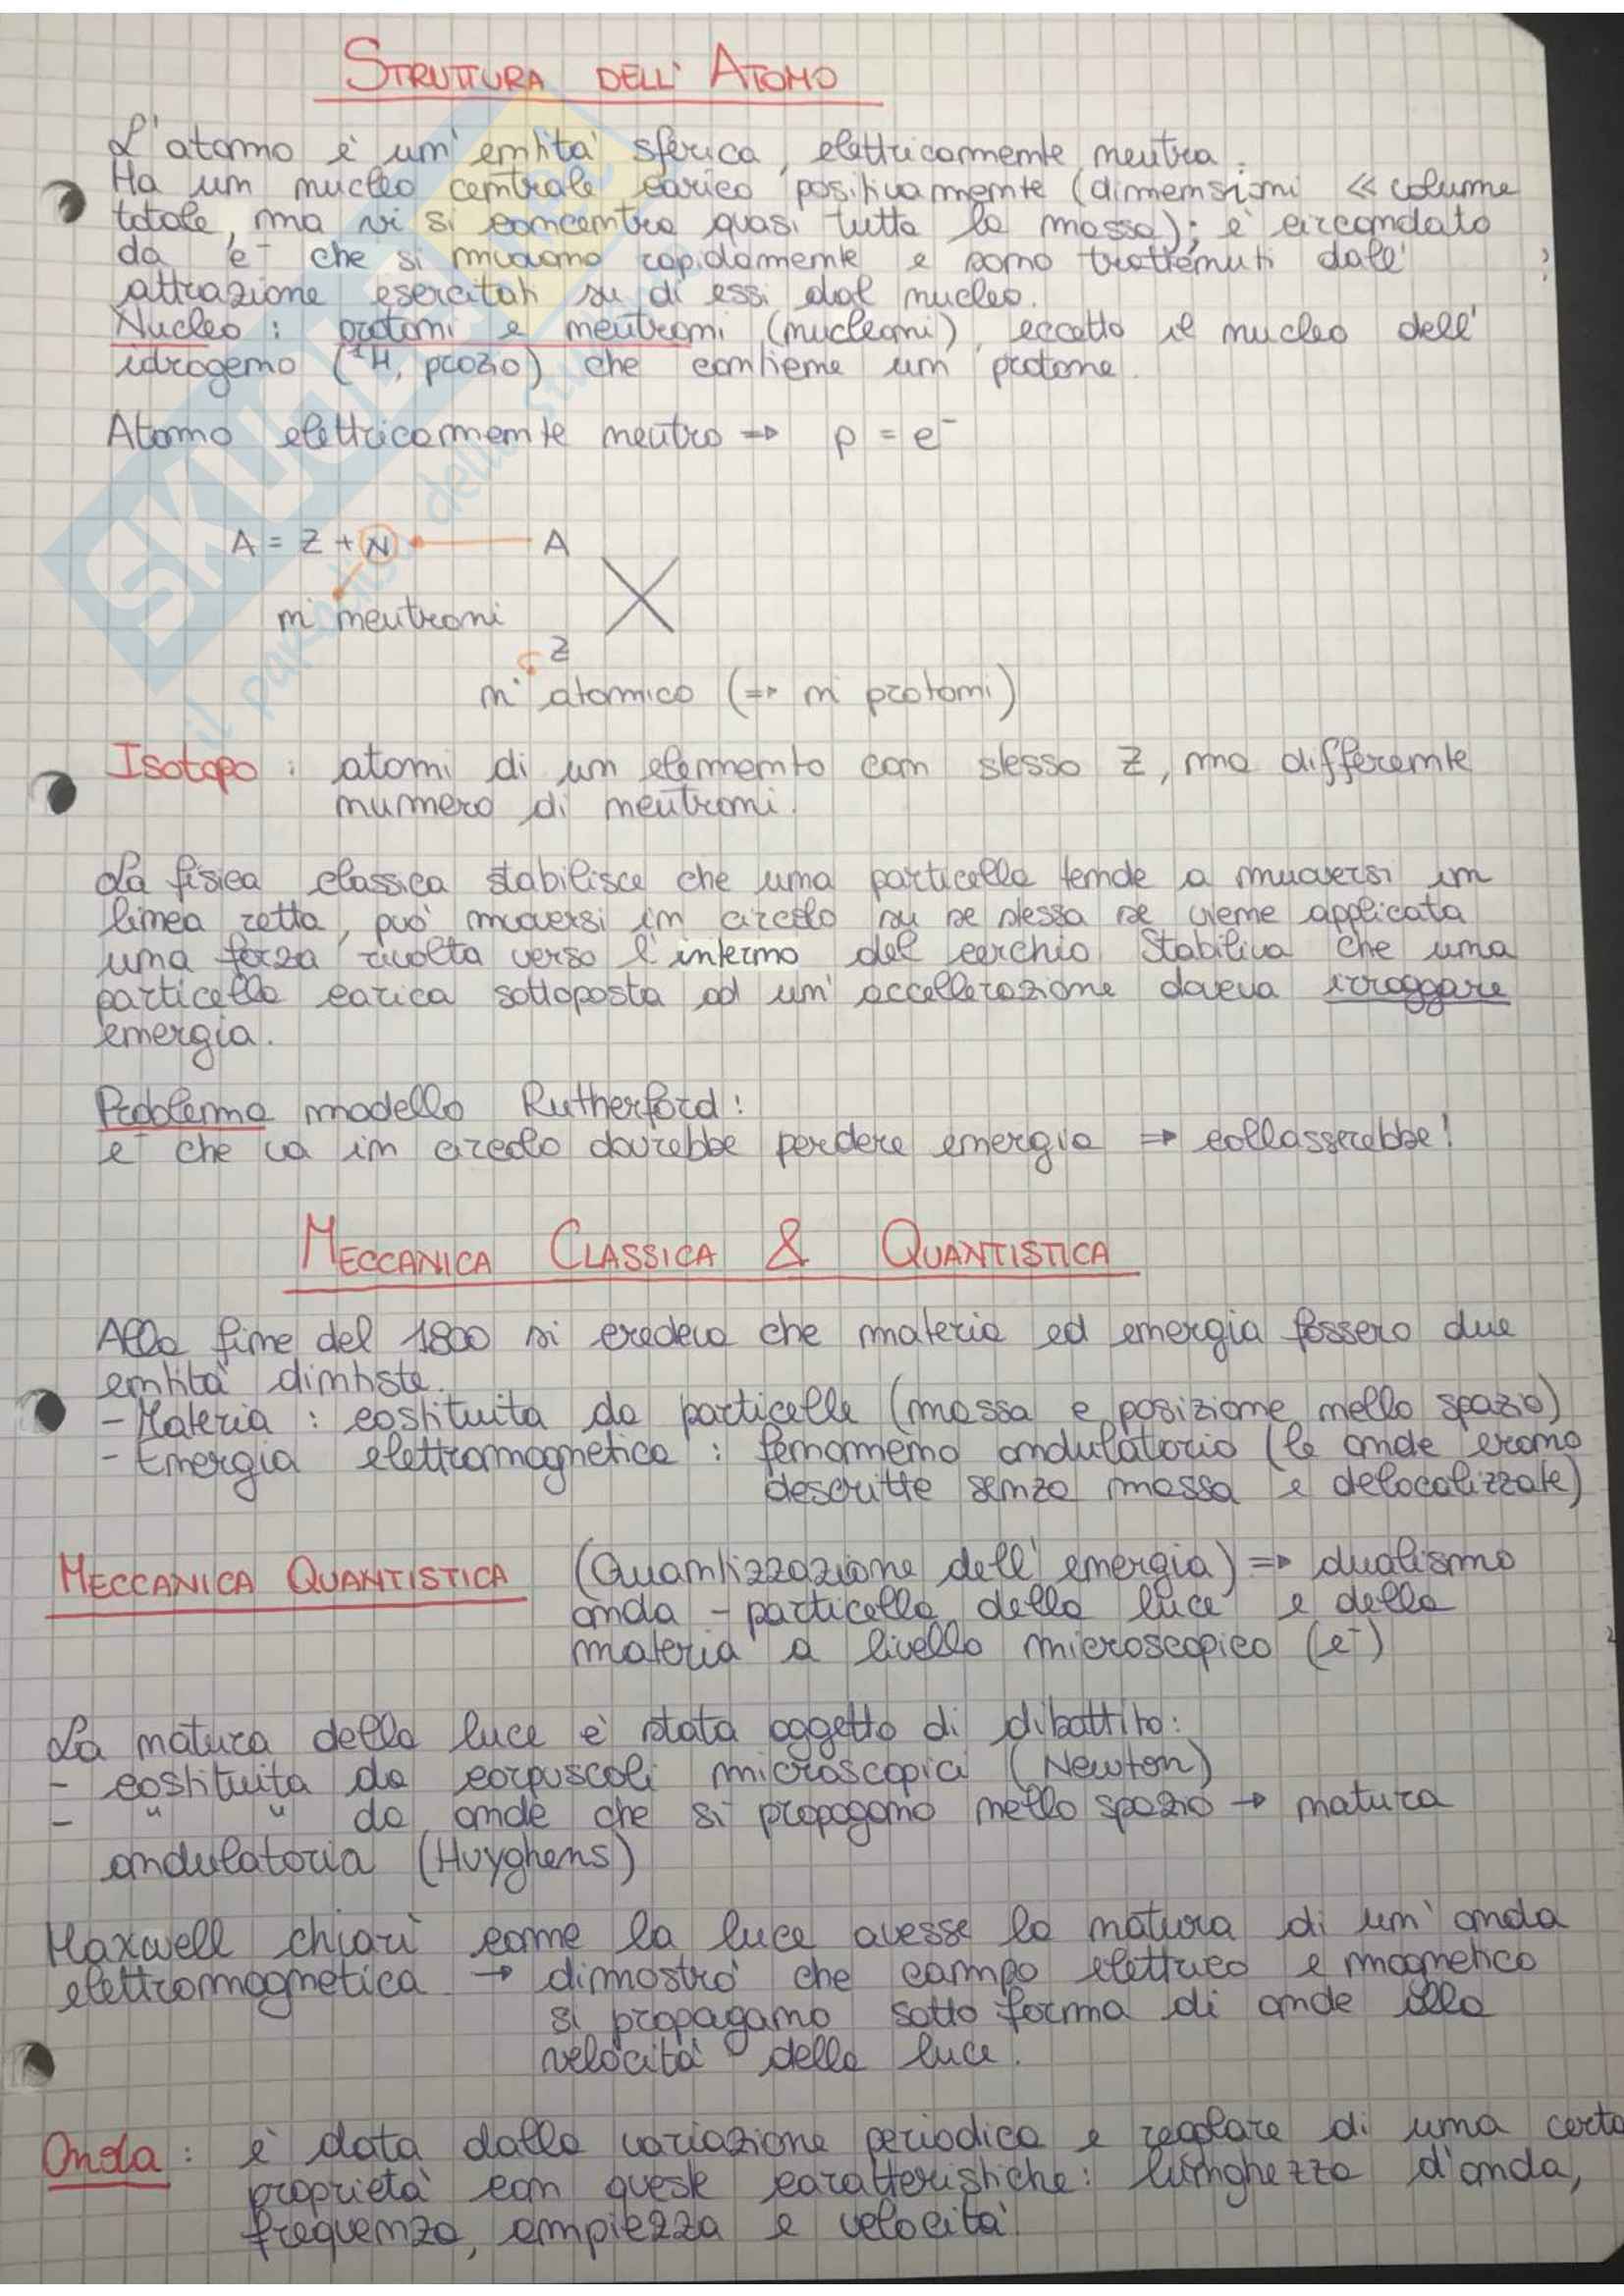 STRUTTURA DELL' ATOMO
L'atomo è un' entità sferica, elettricamente neutra.
Ha un nucleo centrale carico positivamente (dimensioni << volume
totale, ma vi si concentra quasi tutta la massa); è circondato
da e⁻ che si muovono rapidamente e sono trattenuti dall'
attrazione esercitati su di essi dal nucleo.
Nucleo: protoni e neutroni (nucleoni), eccetto il nucleo dell'
idrogeno (¹H, prozio) che contiene un protone.
Atomo elettricamente neutro => p = e⁻
A = Z + N A
X
n° neutroni
Z
n° atomico (=> n° protoni)
Isotopo: atomi di un elemento con stesso Z, ma differente
numero di neutroni.
La fisica classica stabilisce che una particella tende a muoversi in
linea retta, può muoversi in circolo su se stessa se viene applicata
una forza rivolta verso l'interno del cerchio. Stabiliva che una
particella carica sottoposta ad un' accellerazione doveva irraggare
energia.
Problema modello Rutherford:
e⁻ che va in circolo dovrebbe perdere energia => collasserebbe!
MECCANICA CLASSICA & QUANTISTICA
Alla fine del 1800 si credeva che materia ed energia fossero due
entità dintiste.
- Materia: costituita da particelle (massa e posizione nello spazio)
- Energia elettromagnetica: fenomeno ondulatorio (le onde erano
descritte senza massa e delocalizzate)
MECCANICA QUANTISTICA (Quantizzazione dell' energia) => dualismo
onda - particella della luce e della
materia a livello microscopico (e⁻)
La natura della luce è stata oggetto di dibattito:
- costituita da corpuscoli microscopici (Newton)
- " " da onde che si propagano nello spazio → natura
ondulatoria (Huyghens)
Maxwell chiarì come la luce avesse la natura di un' onda
elettromagnetica → dimostrò che campo elettrico e magnetico
si propagano sotto forma di onde alla
velocità della luce.
Onda: è data dalla variazione periodica e regolare di una certa
proprietà con queste caratteristiche: lunghezza d'onda,
frequenza, ampiezza e velocità.